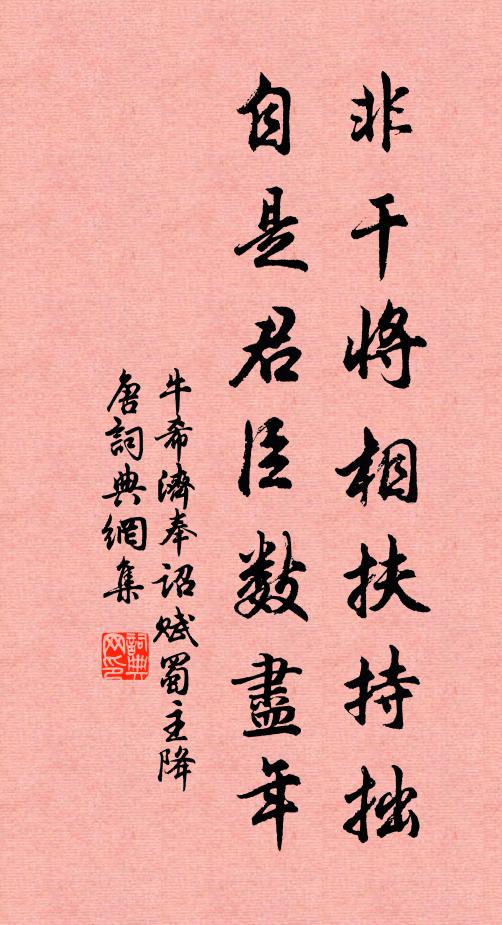 非干將相扶持拙
自是君臣數盡年
牛希濟奉詔賦蜀主降
唐詞典網集
詞典
网印